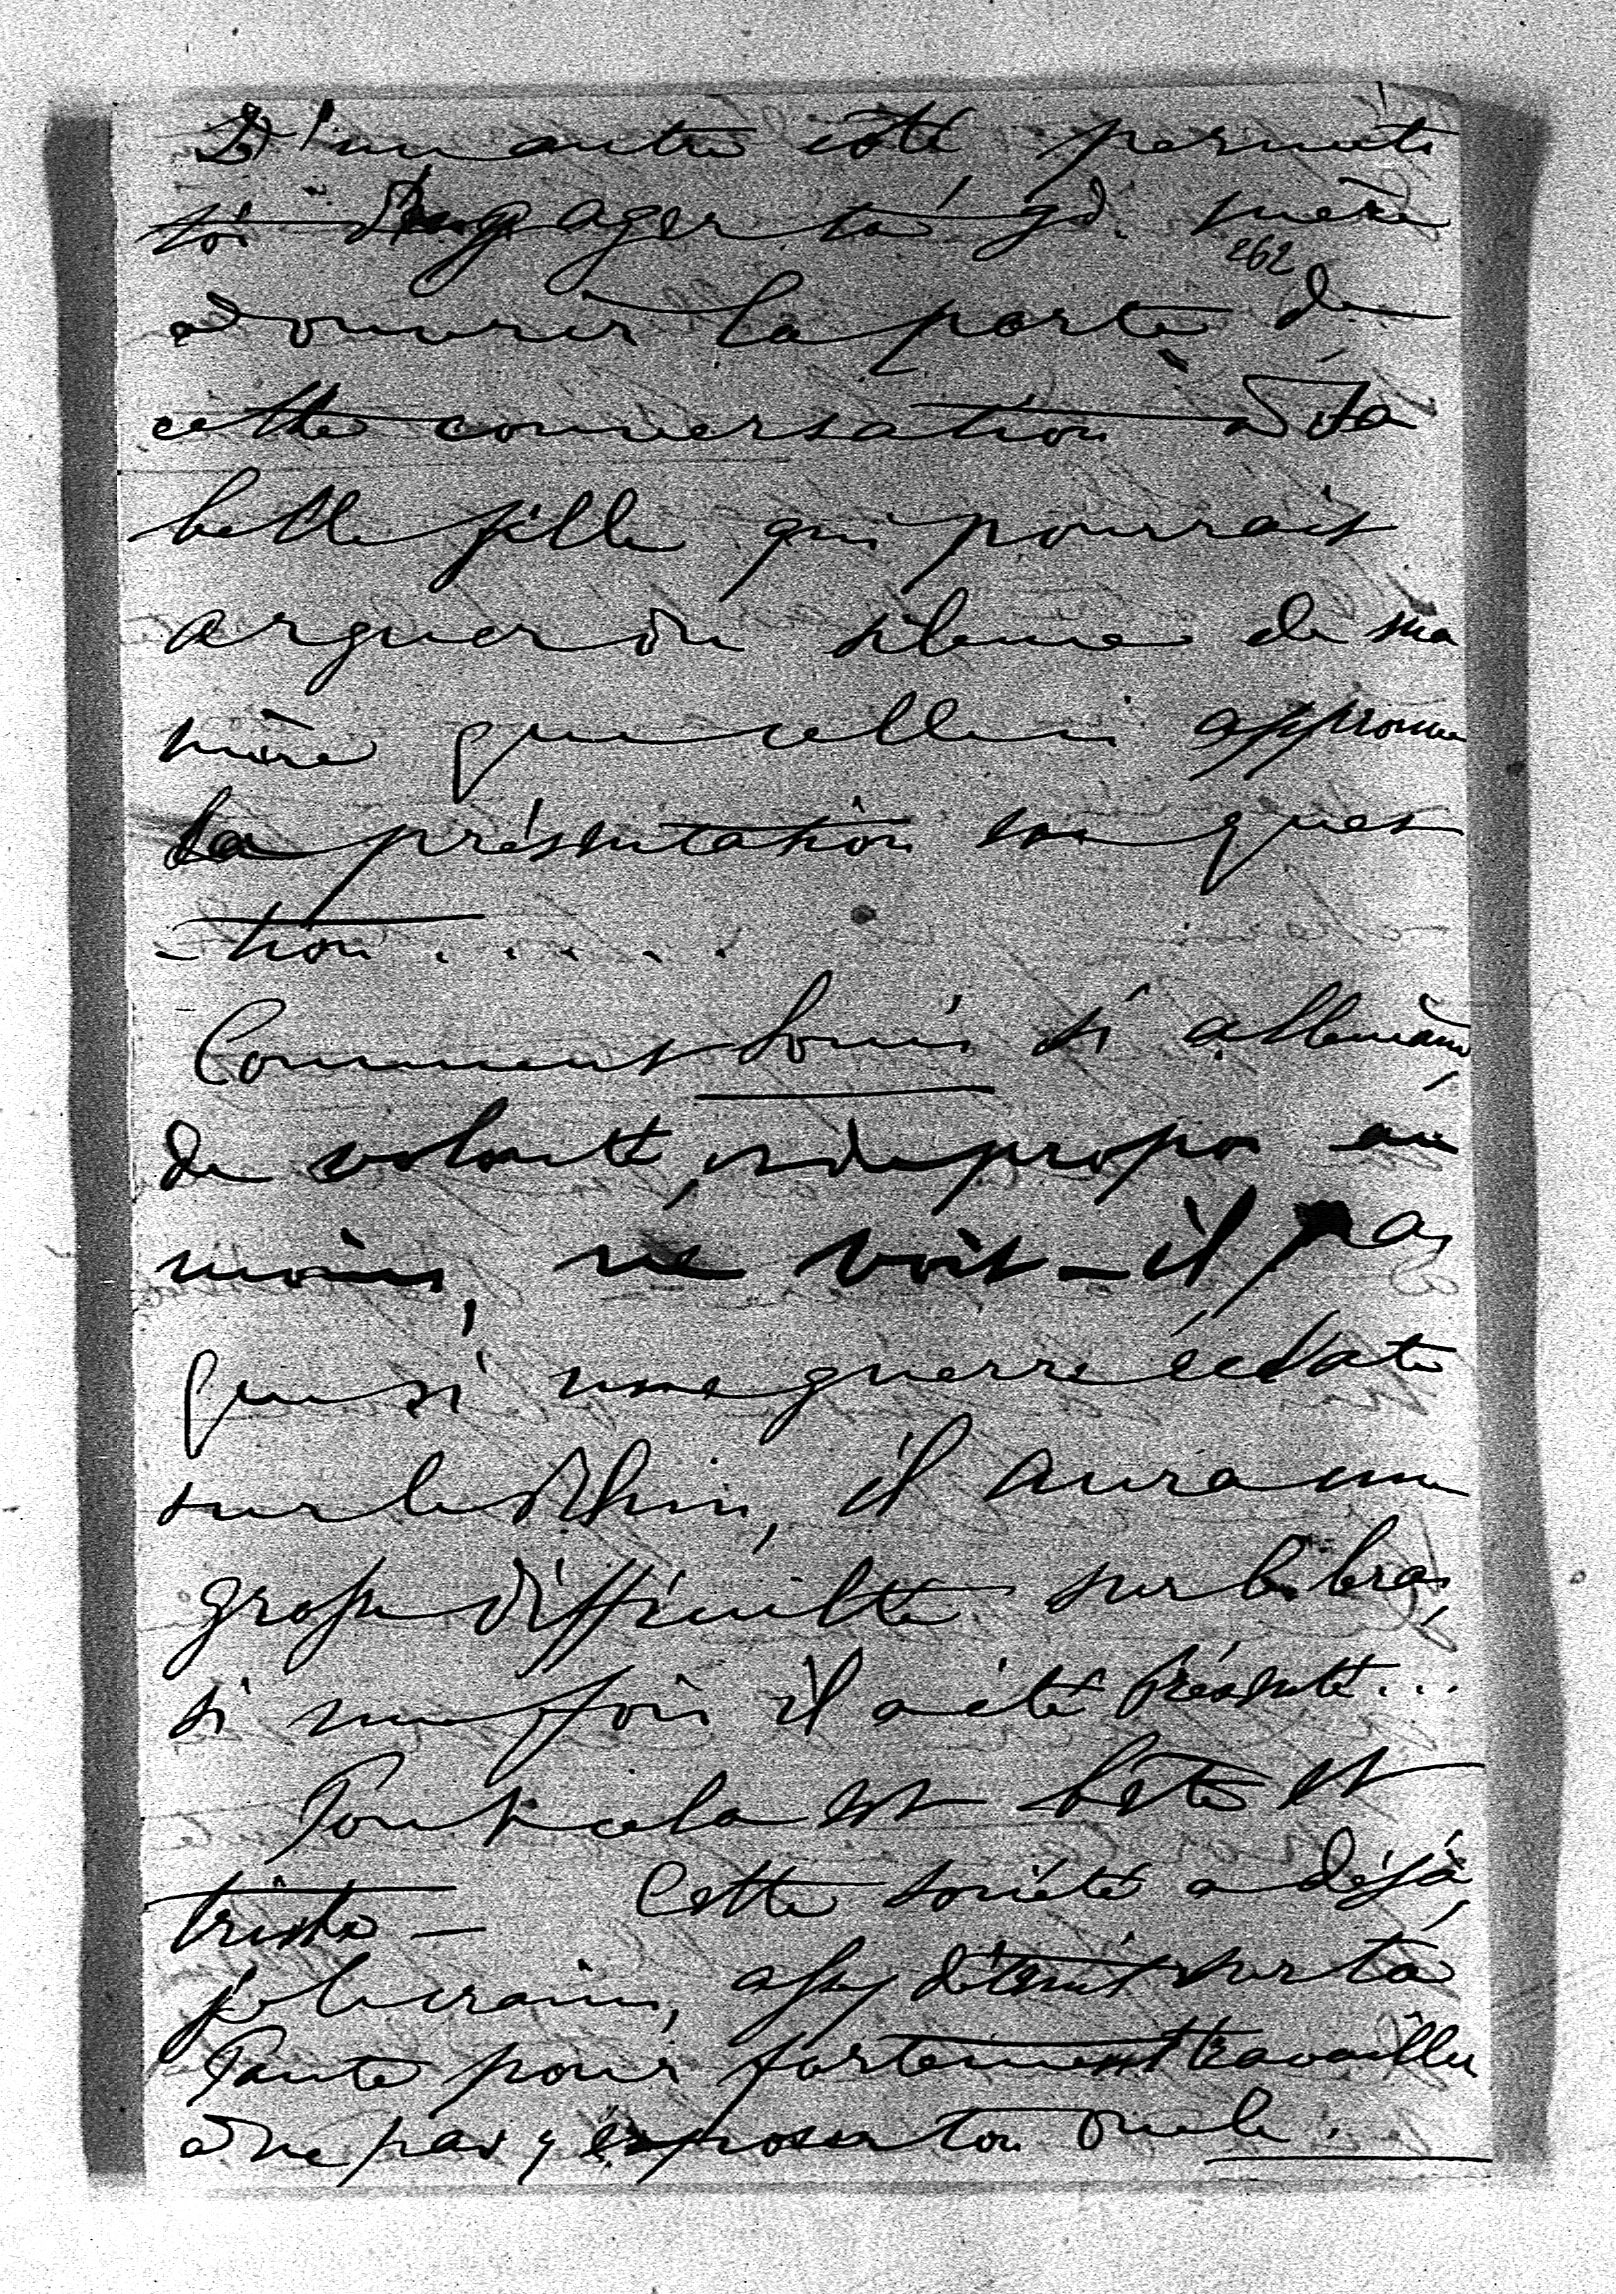 D'un autre côté permets
toi d'engager ta gd. mère
262
à ouvrir la porte de
cette conversation à ta
belle fille qui pourrait
arguer du silence de ma
mère que celle ci approuve
la présentation en ques
-tion.....
Comment Louis si allemand
de volonté, et de propos au
moins, ne voit-il pas
que si une guerre éclate
sur le Rhin, il aura une
grosse difficulté sur les bras,
si une fois il a été présenté...
Tout cela est bête et
triste — Cette société a déjà,
je le crains, assez déteint sur ta
Tante pour fortement travailler
à ne pas y exposer ton oncle.